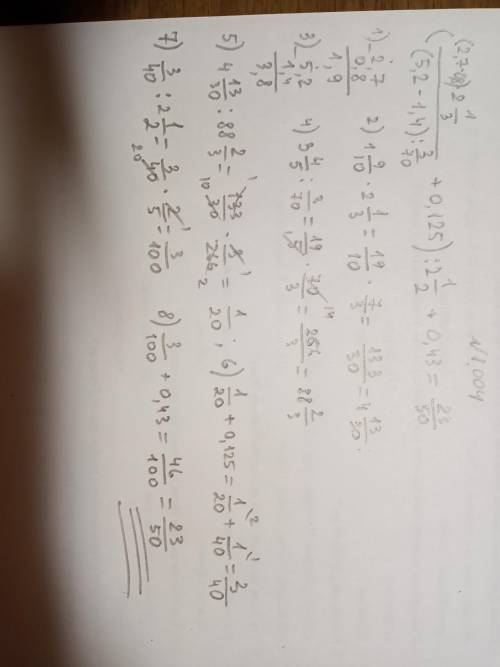 N1.004
( (2,7-0,8)·2 1/3 / (5,2-1,4):3/70 + 0,125) : 2 1/2 + 0,43 = 23/50
1) -2,7 0,8 1,9 2) 1 9/10 · 2 1/3 = 19/10 · 7/3 = 133/30 = 4 13/30.
3) -5,2 1,4 3,8 4) 3 4/5 : 3/70 = 19/5 · 70/3 = 266/3 = 88 2/3
5) 4 13/30 : 88 2/3 = 133/30 · 3/266 = 1/20 ; 6) 1/20 + 0,125 = 1/20 + 1/40 = 3/40
7) 3/40 : 2 1/2 = 3/40 · 2/5 = 3/100 8) 3/100 + 0,43 = 46/100 = 23/50